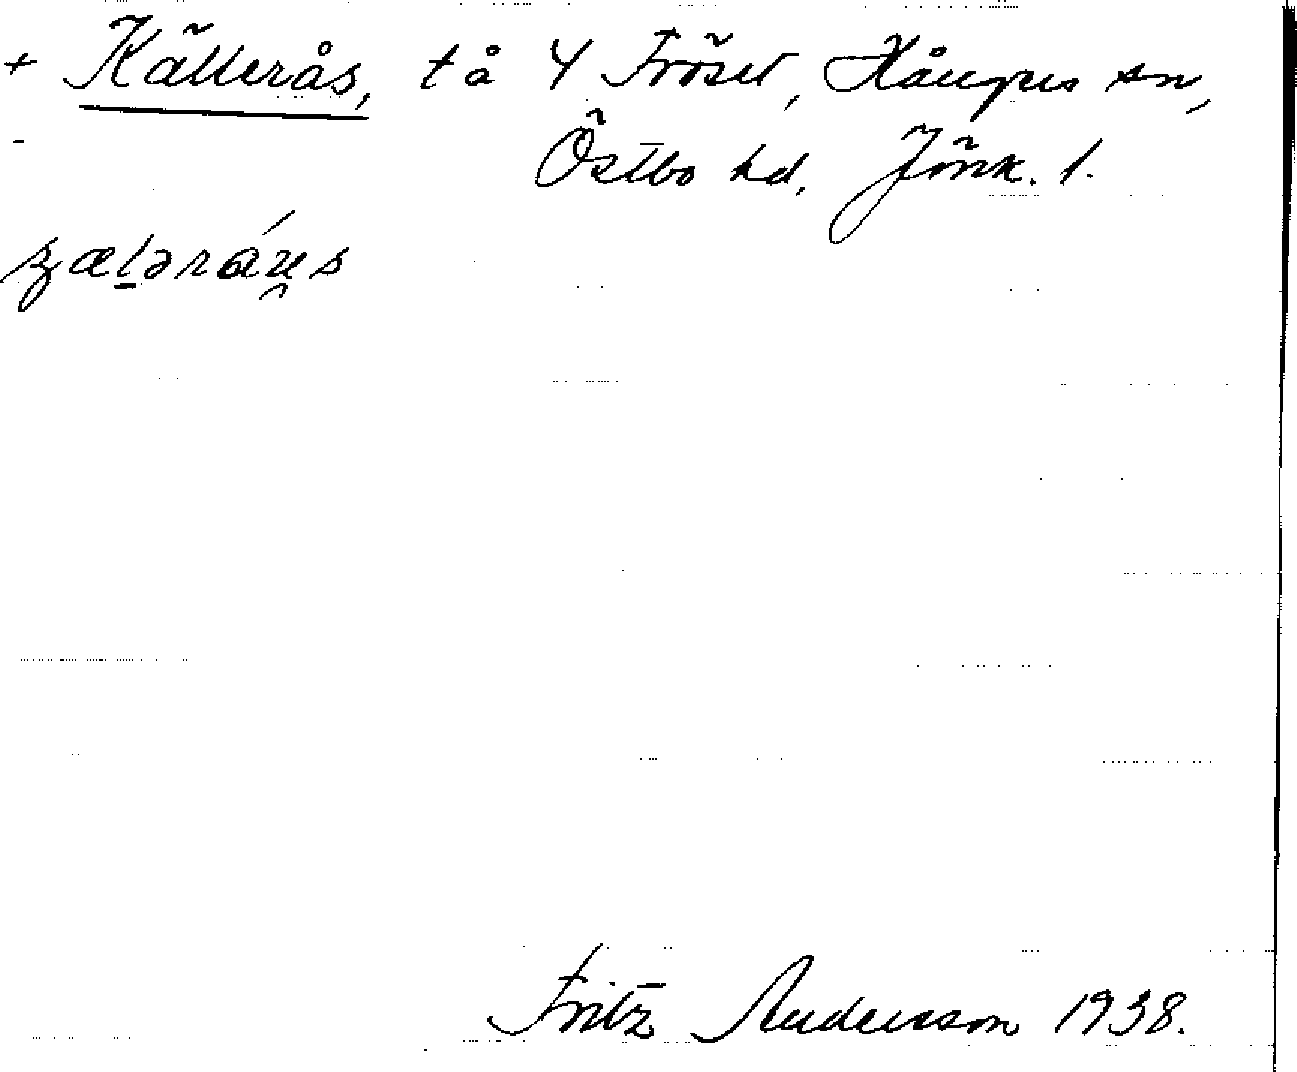 + Källerås, tå 4 Fröset, Hångers sn,
Östbo hd, Jönk. l.
Fritz Andersson 1938.